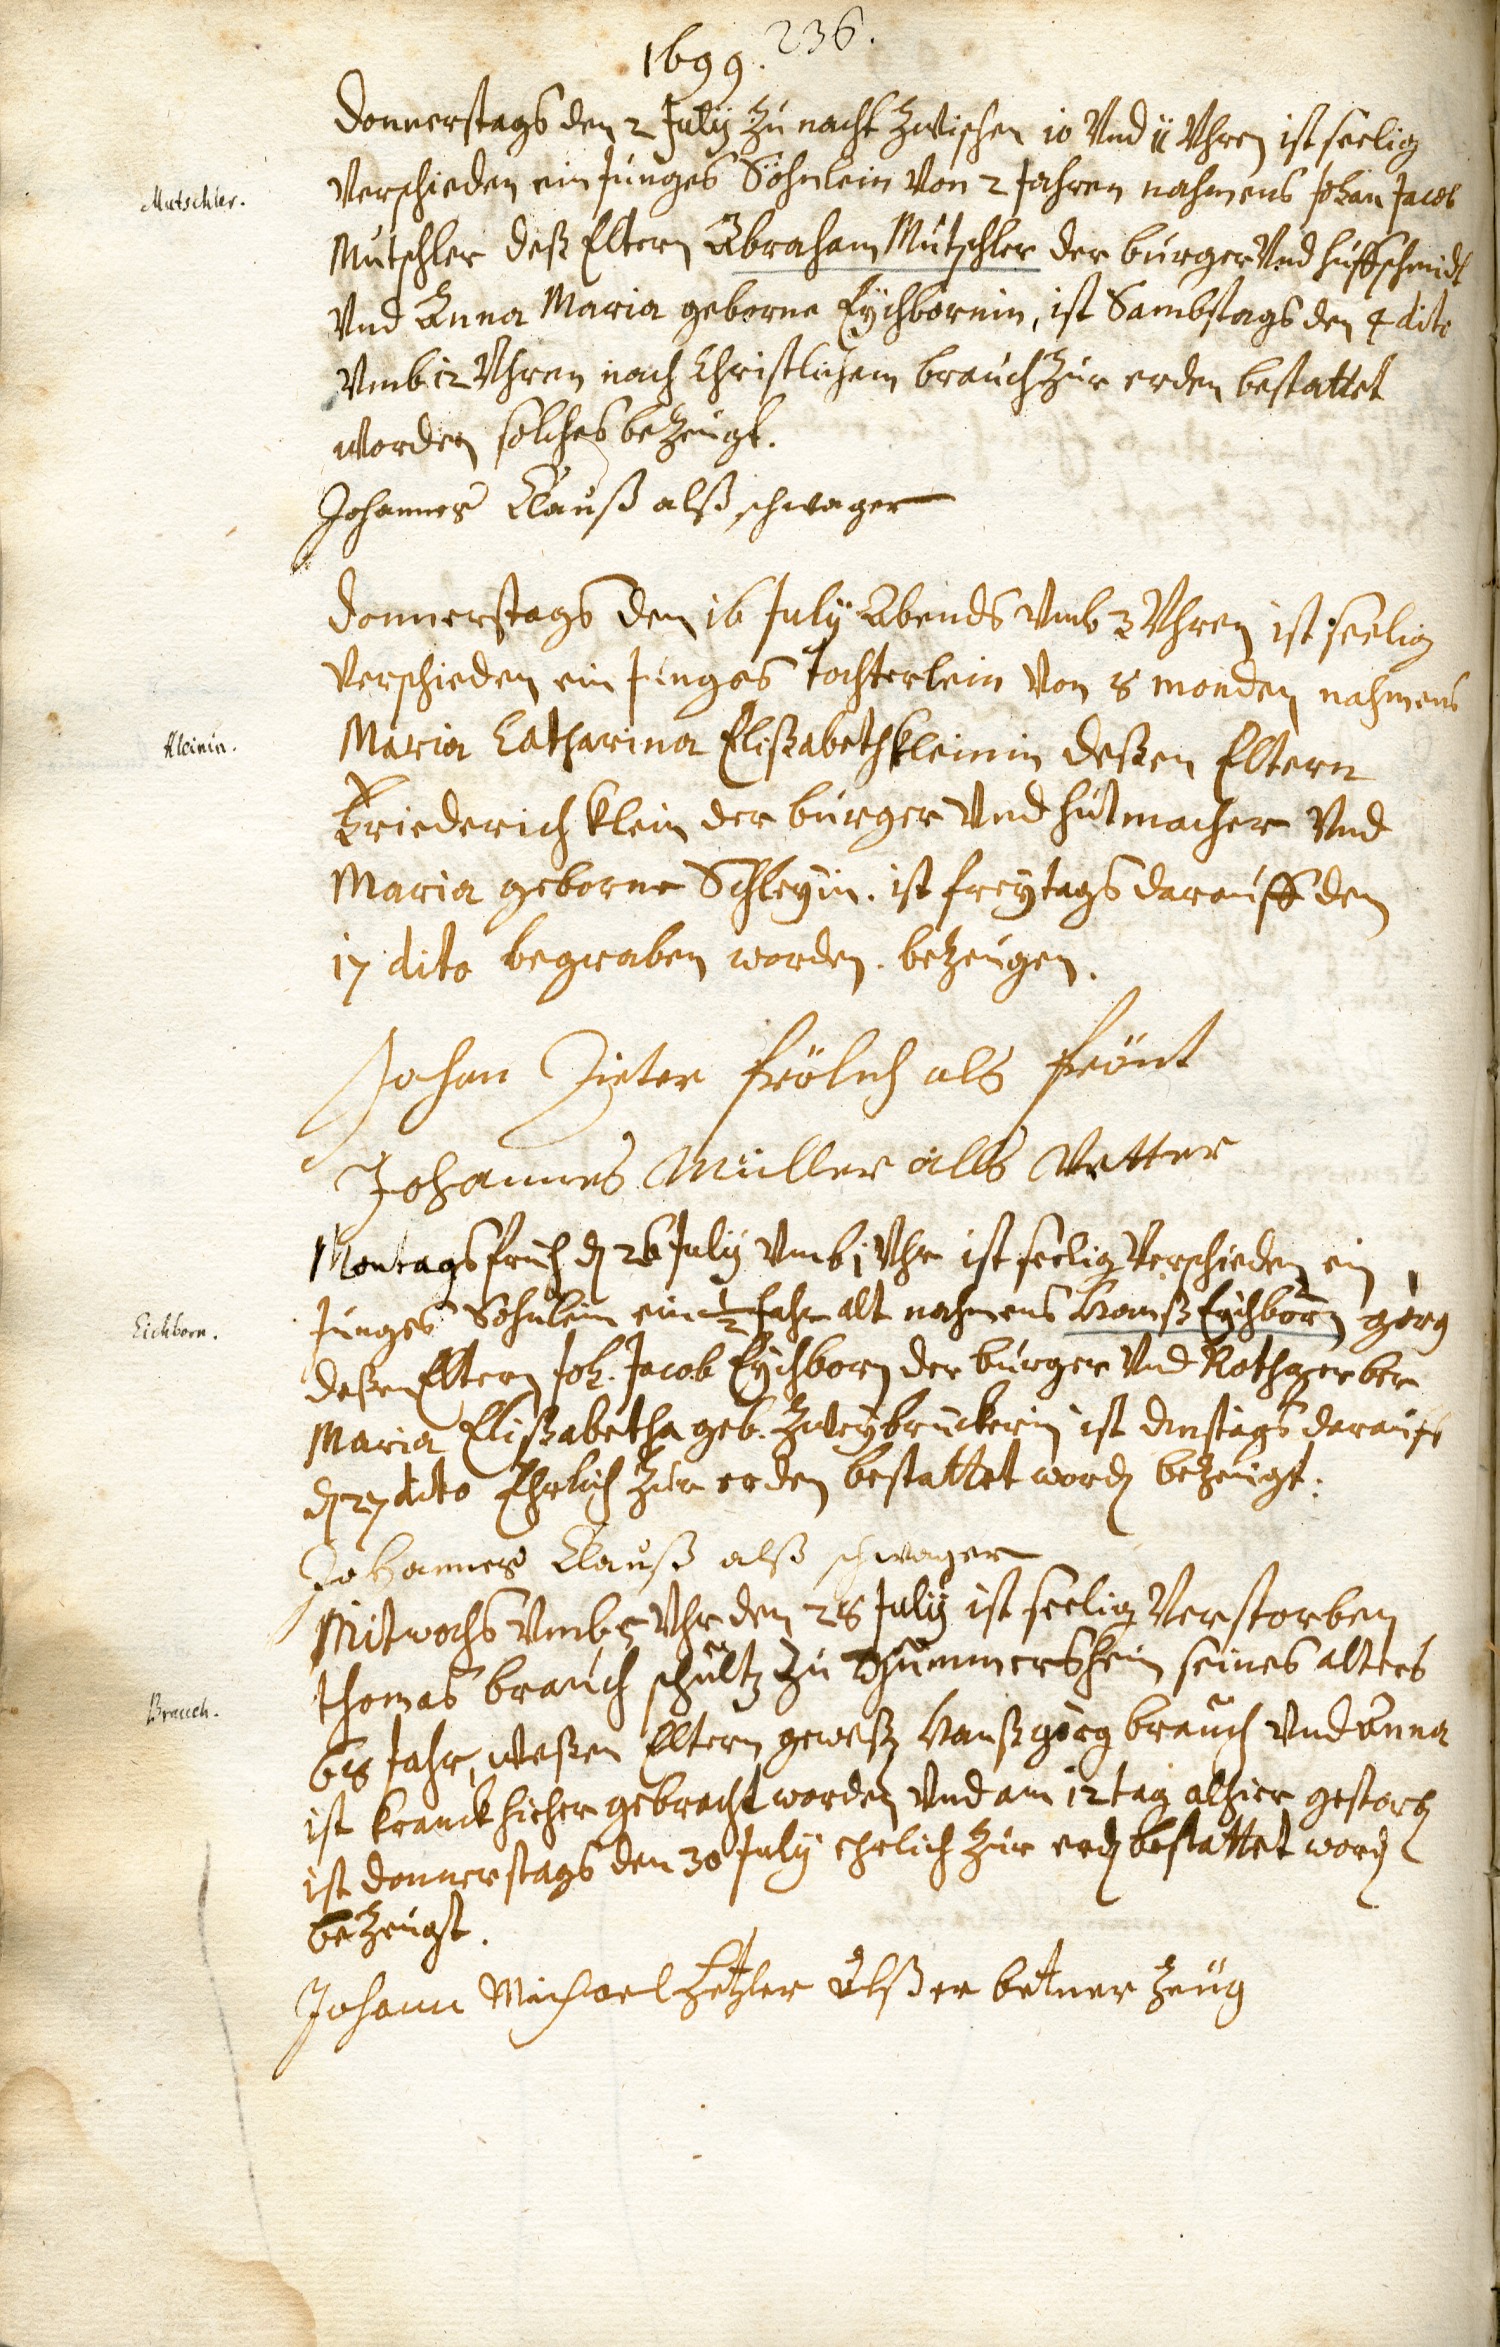 236.
1699.
Donnerstags den 2 July zu nacht zwischen 10 Vnd 11 Vhren ist seelig
Mutschler.
Verschieden ein Junges Söhnlein Von 2 Jahren nahmens Johan Jacob
Mutschler deß Eltern Abraham Mutschler der burger Vnd huffschmidt
Vnd Anna Maria geborne Eychbornin, ist Sambstags den 4 dito
Vmb 12 Vhren nach Christlichem brauch zur erden bestattet
worden solches bezeugt.
Johannes Clauß alß schwager
Donnerstags den 16 July Abends Vmb 3 Vhren ist seelig
Verschieden ein Junges Tochterlein Von 8 monden nahmens
Kleinin.
Maria Catharina Elißabeth Kleinin deßen Eltern
Friederich Klein der burger Vnd hutmacher Vnd
Maria geborne Schleyin. ist freytags darauff den
17 dito begraben worden. bezeugen.
Johan Dieter frölich als frönt
Johannes Müller alls Vetter
Montags früh d 26 July Vmb 1 Vhr ist seelig Verschieden ein
Eichborn.
Junges Söhnlein ein 1/2 Jahr alt nahmens Hanß Eychborn görg
deßen Eltern Joh. Jacob Eychborn der burger Vnd Rothgerber
Maria Elißabetha geb. Zweybrückerin ist dinstags darauff
d 27 dito Ehrlich zur erden bestattet word bezeugt.
Johannes Clauß alß schwager
Mitwochs Vmb 5 Vhr den 28 July ist seelig Verstorben
Thomas brauch schultz zu Thummersheim seines alters
Brauch.
68 Jahr, weßen Eltern geweß Hanß görg brauch Vnd Anna
ist kranck hieher gebracht worden Vnd am 12 tag alhier gestorb
ist donnerstags den 30 July ehrlich zur erd bestattet word
bezeugt.
Johann Michael Hetzler Alß er betner Zeug